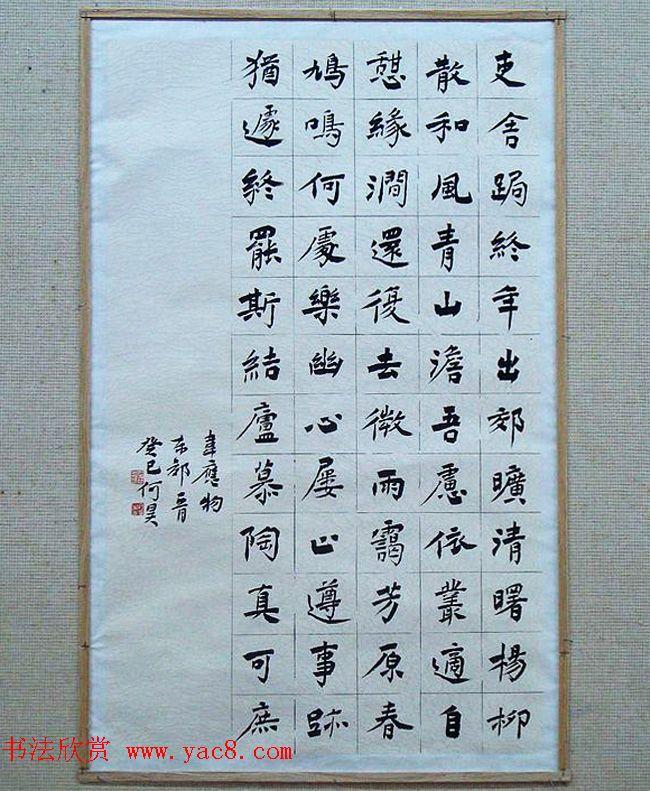 吏舍跼終年出郊曠清曙楊柳
散和風青山澹吾慮依叢適自
憩緣澗還復去微雨靄芳原春
鳩鳴何處樂幽心屢止遵事跡
猶遽終罷斯結廬慕陶真可庶
韋應物
东郊
癸巳何昊
书法欣赏 www.yac8.com